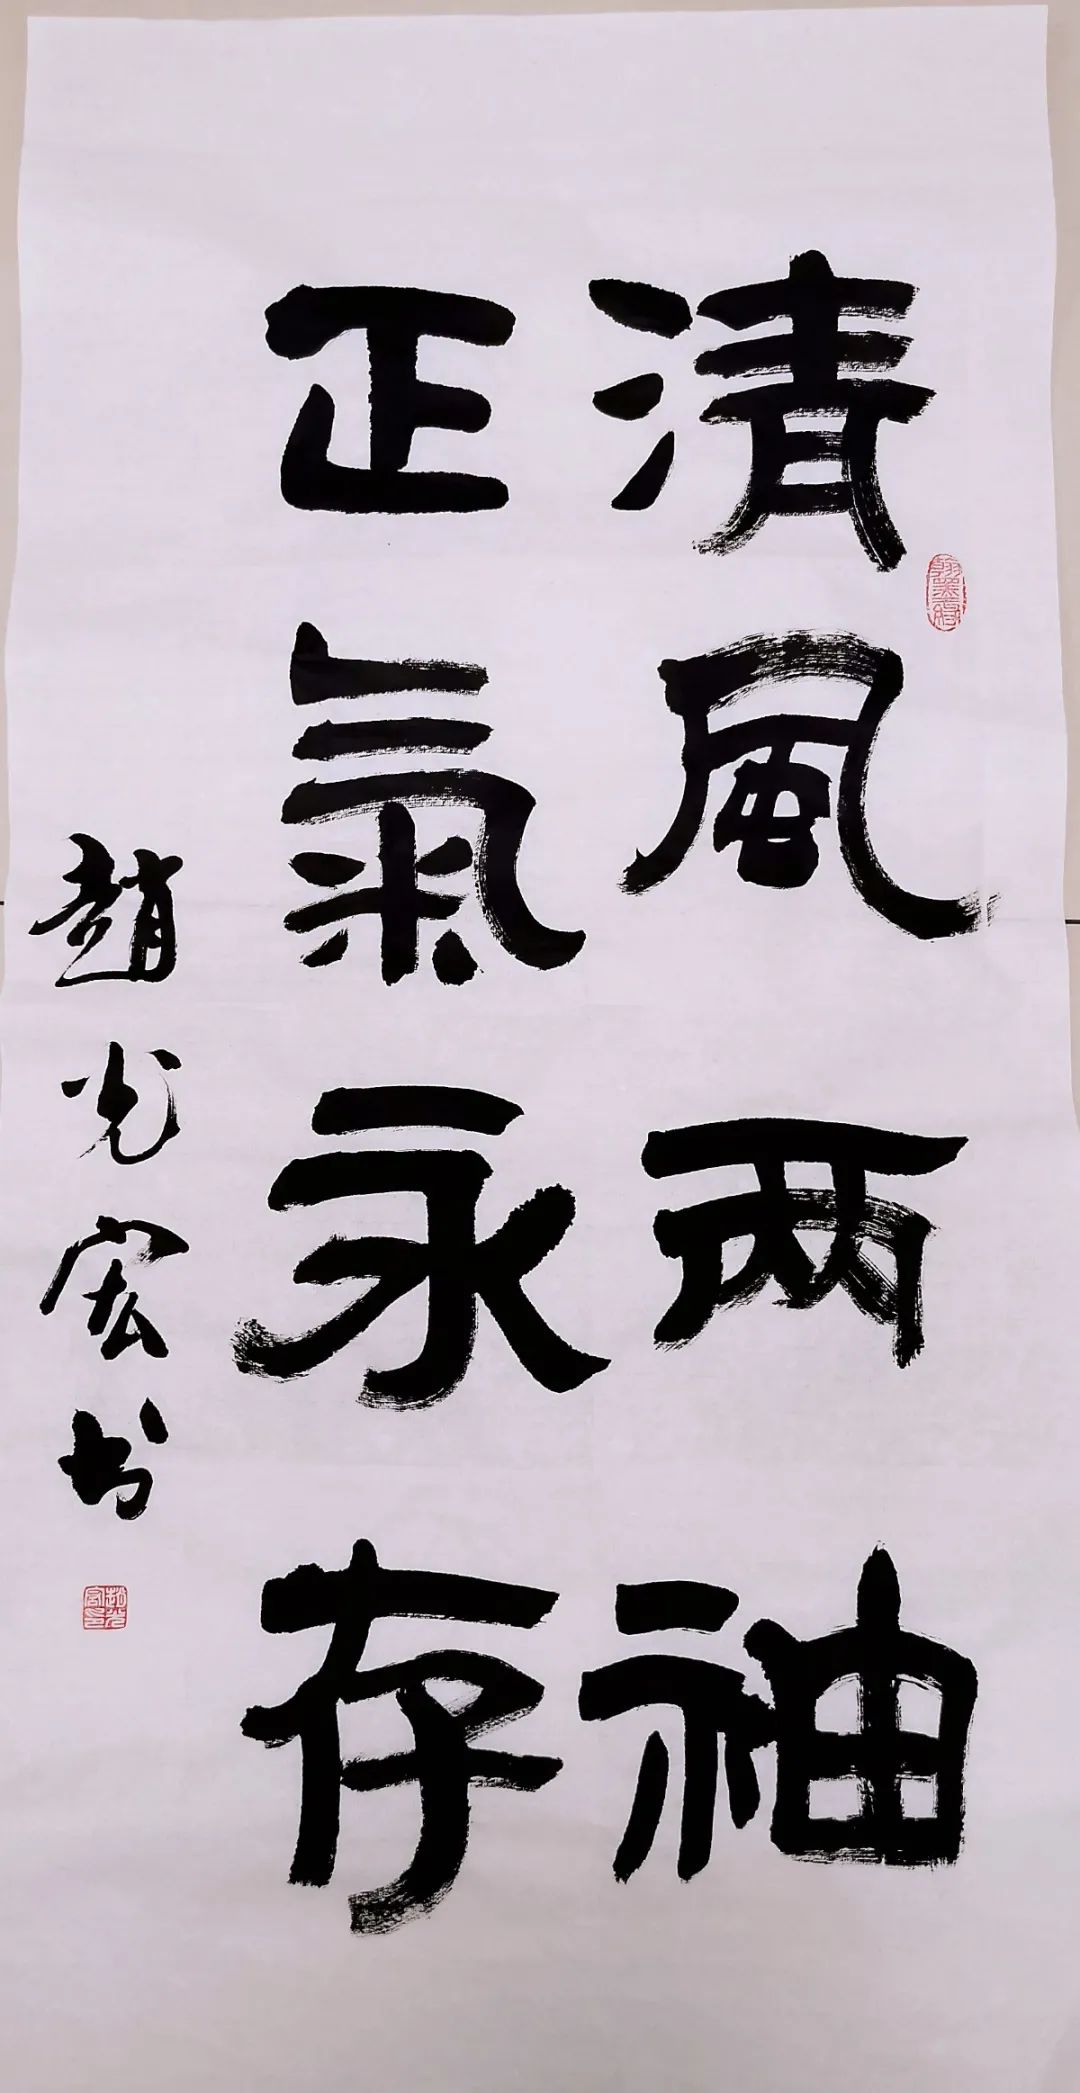 清風两袖
正氣永存
趙光宏书